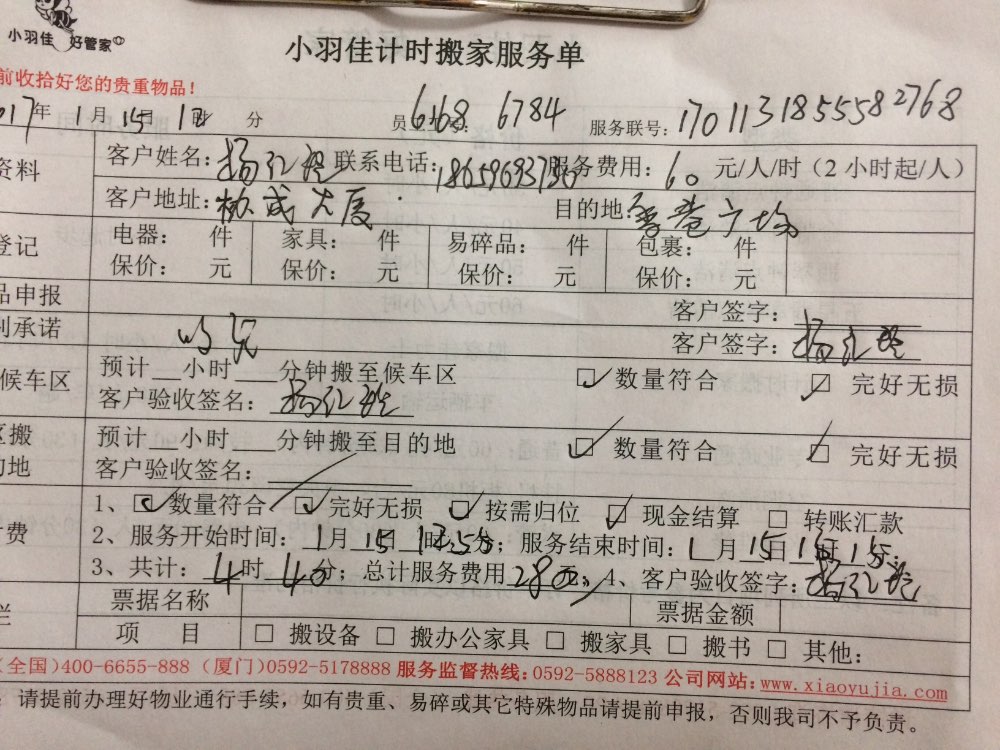 小羽佳 好管家
小羽佳计时搬家服务单
前收拾好您的贵重物品！
017年 1月 15日 时 分 员 号: 6168 6784 服务联号: 170113185555582768
资料 客户姓名: 杨红玲 联系电话: 服务费用: 60 元/人/时（2小时起/人）
客户地址: 协成大厦 目的地 广场
登记 电器: 件 家具: 件 易碎品: 件 包裹: 件
保价: 元 保价: 元 保价: 元 保价: 元
品申报 客户签字:
利承诺 客户签字: 杨红玲
候车区 预计 小时 分钟搬至候车区 ☑ 数量符合 ☑ 完好无损
客户验收签名: 杨红玲
区搬 预计 小时 分钟搬至目的地 ☑ 数量符合 ☑ 完好无损
的地 客户验收签名:
1、☑ 数量符合 ☑ 完好无损 ☑ 按需归位 ☑ 现金结算 □ 转账汇款
计费 2、服务开始时间: 1月 15日 时 分；服务结束时间: 1月 15日 时 分；
3、共计: 4时 40分；总计服务费用 280元；4、客户验收签字: 杨红玲
栏 票据名称 票据金额
项 目 □ 搬设备 □ 搬办公家具 □ 搬家具 □ 搬书 □ 其他:
（全国）400-6655-888（厦门）0592-5178888 服务监督热线: 0592-5888123 公司网站: www.xiaoyujia.com
: 请提前办理好物业通行手续，如有贵重、易碎或其它特殊物品请提前申报，否则我司不予负责。